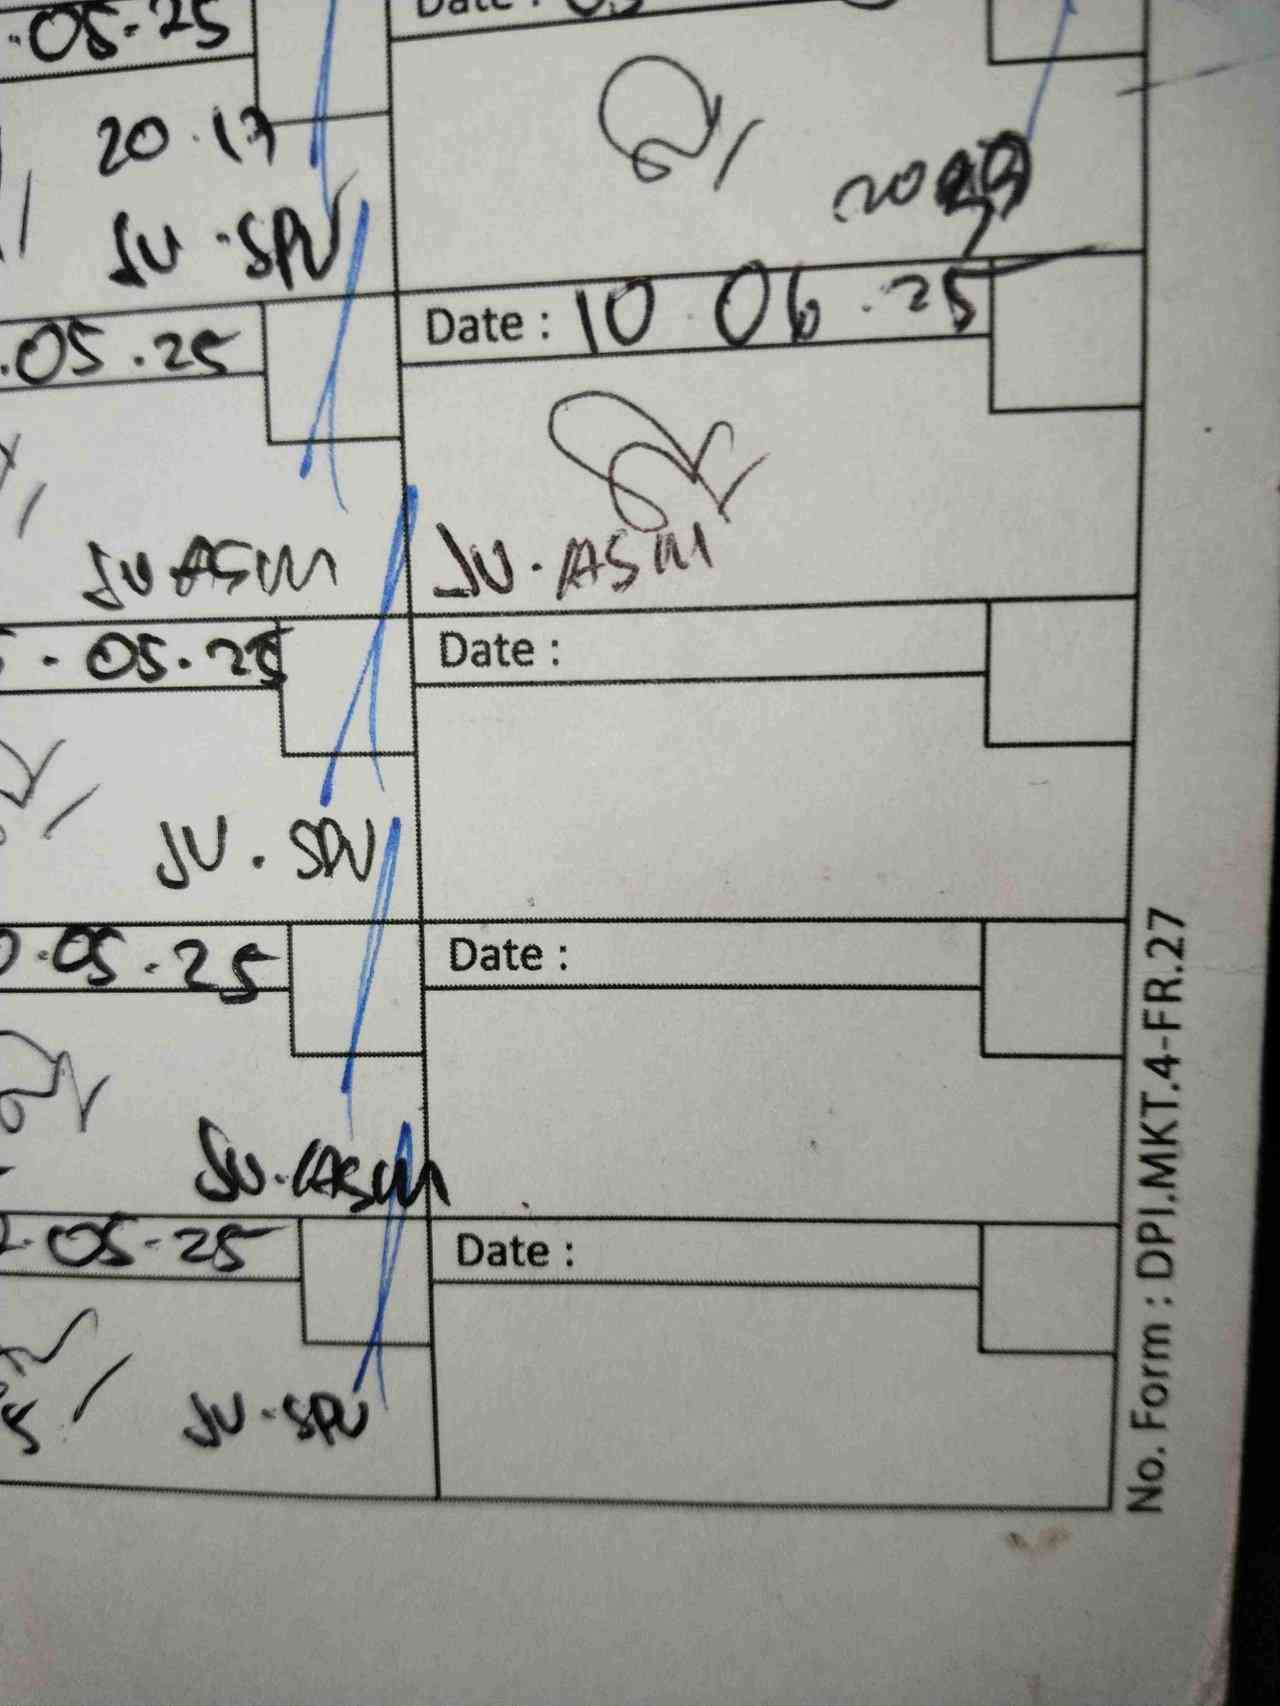 .05.25
20.17
JU.SPV
.05.25
JU ASM
. 05.25
JU. SPV
.05.25
JU.ASM
.05.25
JU.SPV
Date :
Date : 10 06 .25
JU. ASM
Date :
Date :
Date :
No. Form : DPI.MKT.4-FR.27